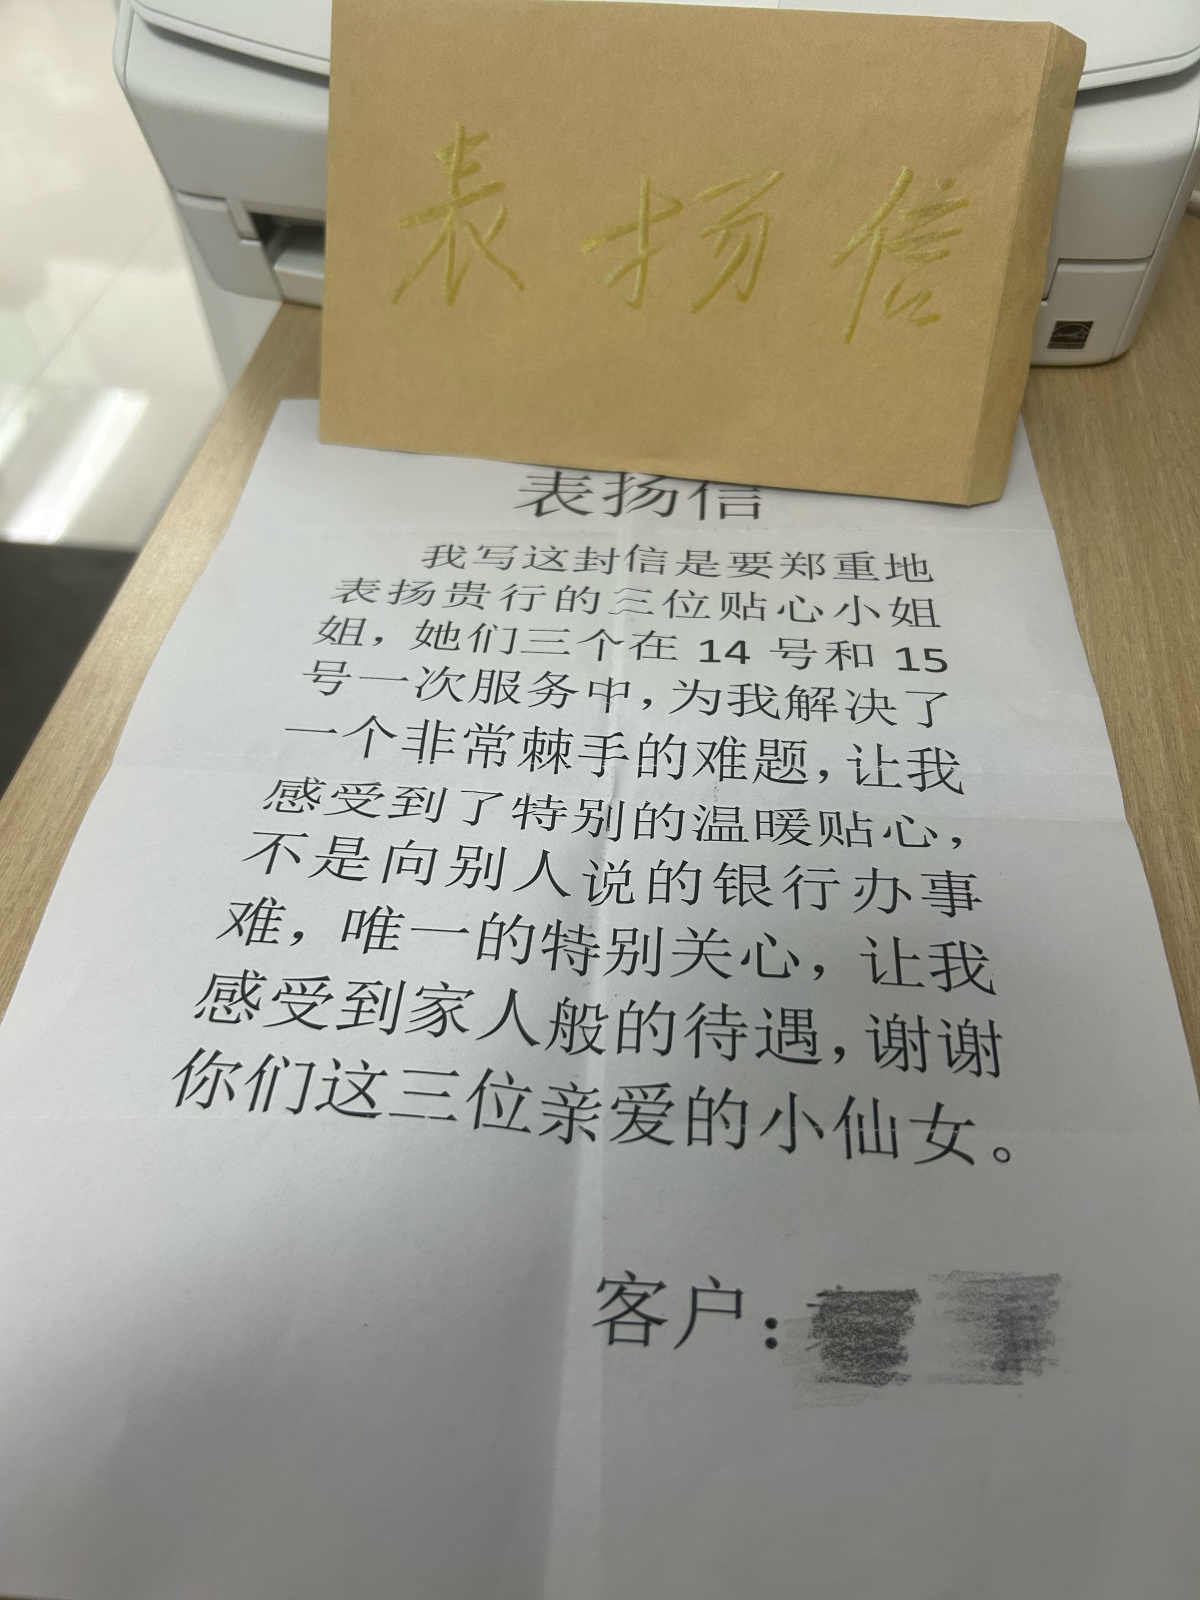 表扬信
表扬信
我写这封信是要郑重地
表扬贵行的三位贴心小姐
姐，她们三个在 14 号和 15
号一次服务中，为我解决了
一个非常棘手的难题，让我
感受到了特别的温暖贴心，
不是向别人说的银行办事
难，唯一的特别关心，让我
感受到家人般的待遇，谢谢
你们这三位亲爱的小仙女。
客户：